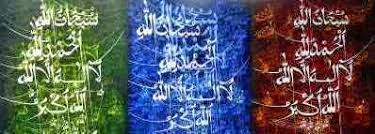 سبحان الله
الحمد لله
لا اله الا الله
الله اكبر
سبحان الله
الحمد لله
لا اله الا الله
الله اكبر
سبحان الله
الحمد لله
لا اله الا الله
الله اكبر